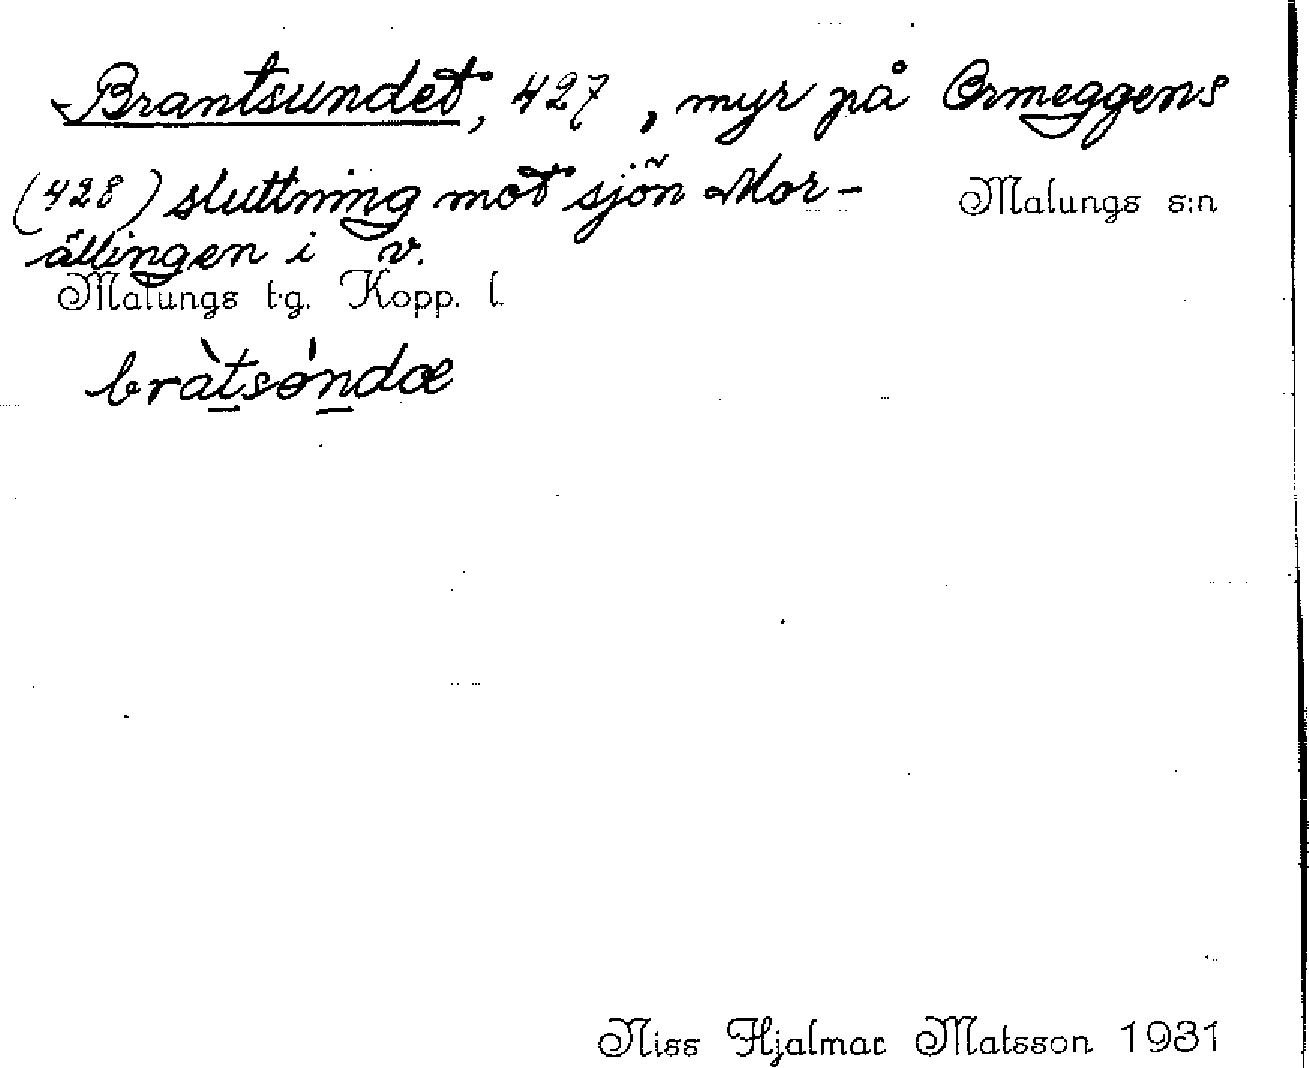 Brantsundet, 427, myr på Ormeggens
(428) sluttning mot sjön Mor-
Malungs s:n
ällingen i v.
Malungs t.g. Kopp. l.
bràtsón̲dæ
Niss Hjalmar Matsson 1931